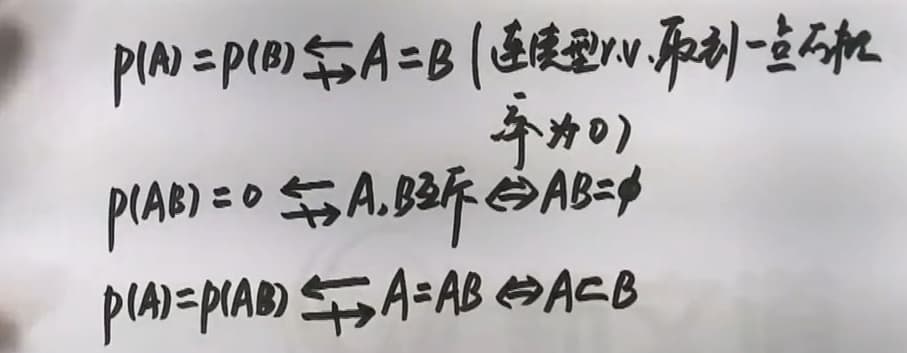 P(A)=P(B) ⇍̸⇆ A=B (连续型r.v.取到一点的概
率为0)
P(AB)=0 ⇆̸ A,B互斥 ⇔ AB=φ
P(A)=P(AB) ⇆̸ A=AB ⇔ A⊂B